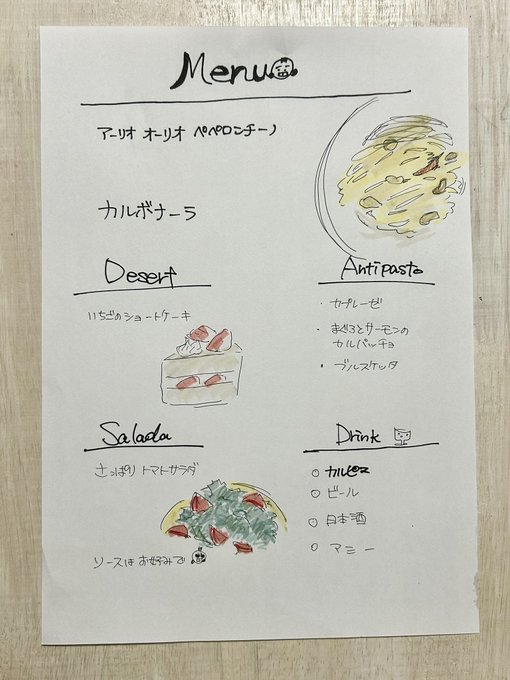 Menu
アーリオ オーリオ ペペロンチーノ
カルボナーラ
Desert
いちごのショートケーキ
Antipasto
・カプレーゼ
・まぐろとサーモンの
カルパッチョ
・ブルスケッタ
Salada
さっぱり トマトサラダ
ソースは お好みで
Drink
○ カルピス
○ ビール
○ 日本酒
○ マミー